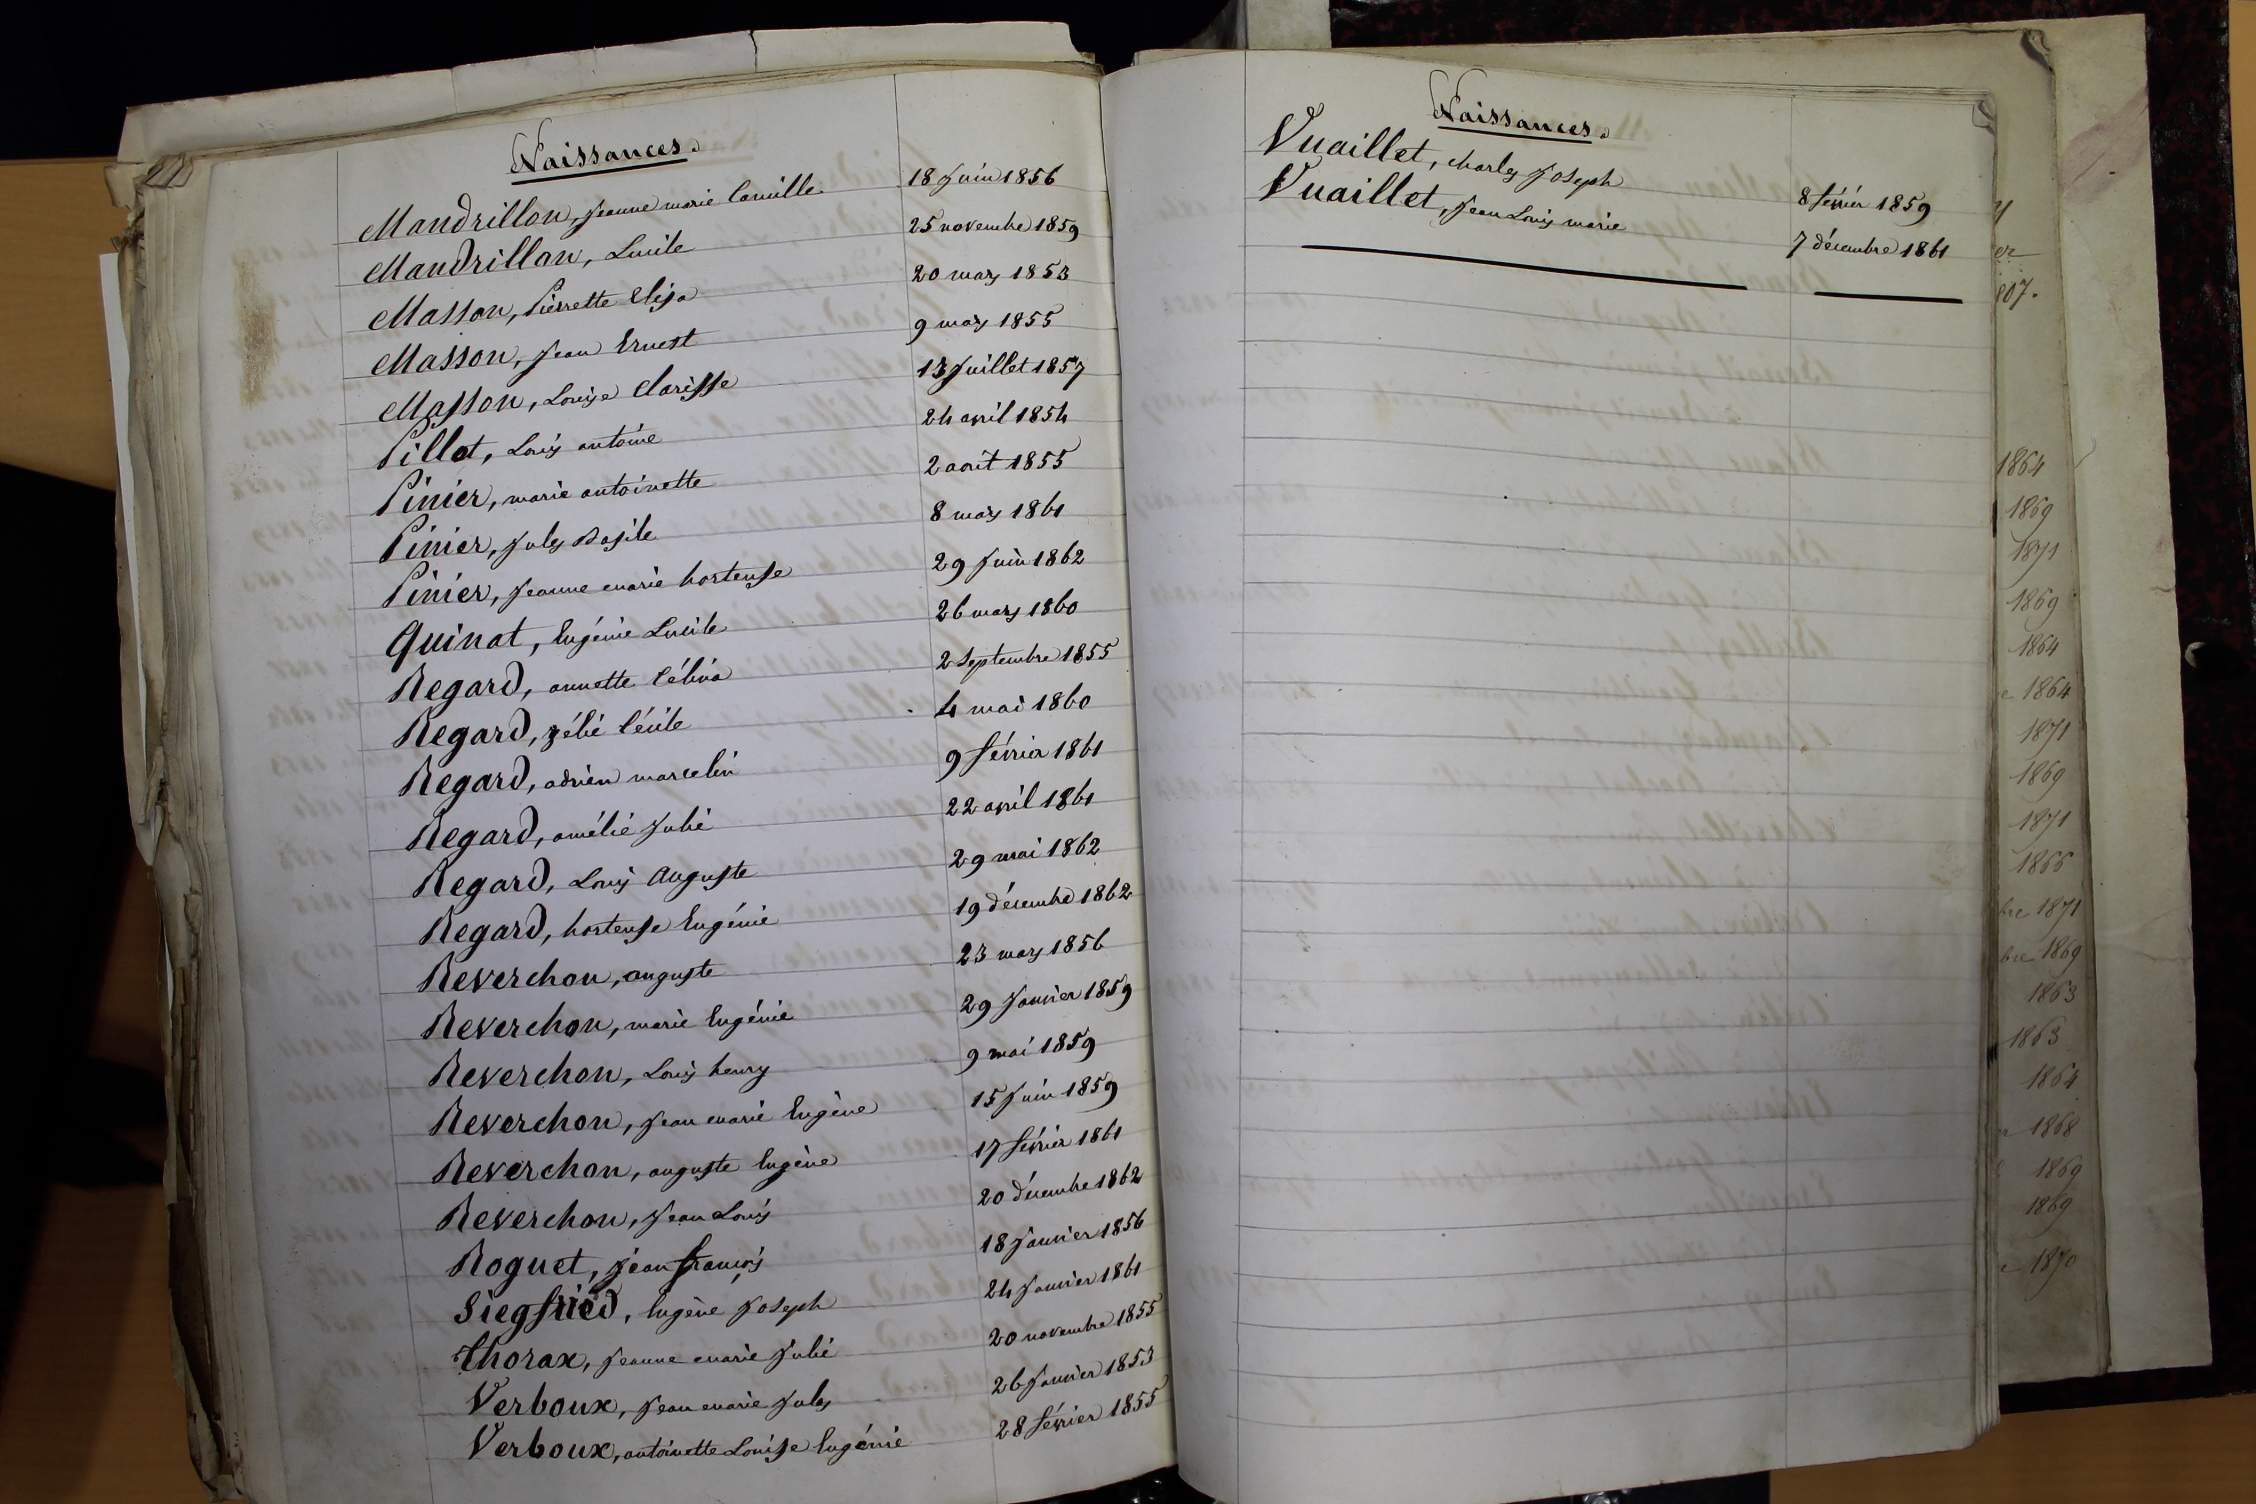 Naissances.
Mandrillon, Jeanne marie Camille 18 Juin 1856
Mandrillon, Lucile 25 novembre 1859
Masson, Pierrette Elisa 20 mars 1853
Masson, Jean Ernest 9 mars 1855
Masson, Louise Clarisse 13 Juillet 1857
Pillot, Louis antoine 24 avril 1854
Pinier, marie antoinette 2 août 1855
Pinier, Jules Basile 8 mars 1861
Pinier, Jeanne marie hortense 29 Juin 1862
Quinot, Eugénie Lucile 26 mars 1860
Regard, annette Célina 2 Septembre 1855
Regard, zélie Cécile 4 mai 1860
Regard, adrien marcelin 9 février 1861
Regard, amélie Julie 22 avril 1861
Regard, Louis Auguste 29 mai 1862
Regard, hortense Eugénie 19 décembre 1862
Reverchon, auguste 23 mars 1856
Reverchon, marie Eugénie 29 Janvier 1859
Reverchon, Louis henry 9 mai 1859
Reverchon, Jean marie Eugène 15 Juin 1859
Reverchon, auguste Eugène 17 février 1861
Reverchon, Jean Louis 20 décembre 1862
Roguet, Jean françois 18 Janvier 1856
Siegfried, Eugène Joseph 24 Janvier 1861
Thorax, Jeanne marie Julie 20 novembre 1855
Verboux, Jean marie Jules 26 Janvier 1853
Verboux, antoinette Louise Eugénie 28 février 1855
Naissances.
Vuaillet, Charles Joseph 8 février 1859
Vuaillet, Jean Louis marie 7 décembre 1861
er
807.
1864
1869
1871
1869
1864
e 1864
1871
1869
1871
1866
bre 1871
bre 1869
1863
1863
1864
1868
1869
1869
1870